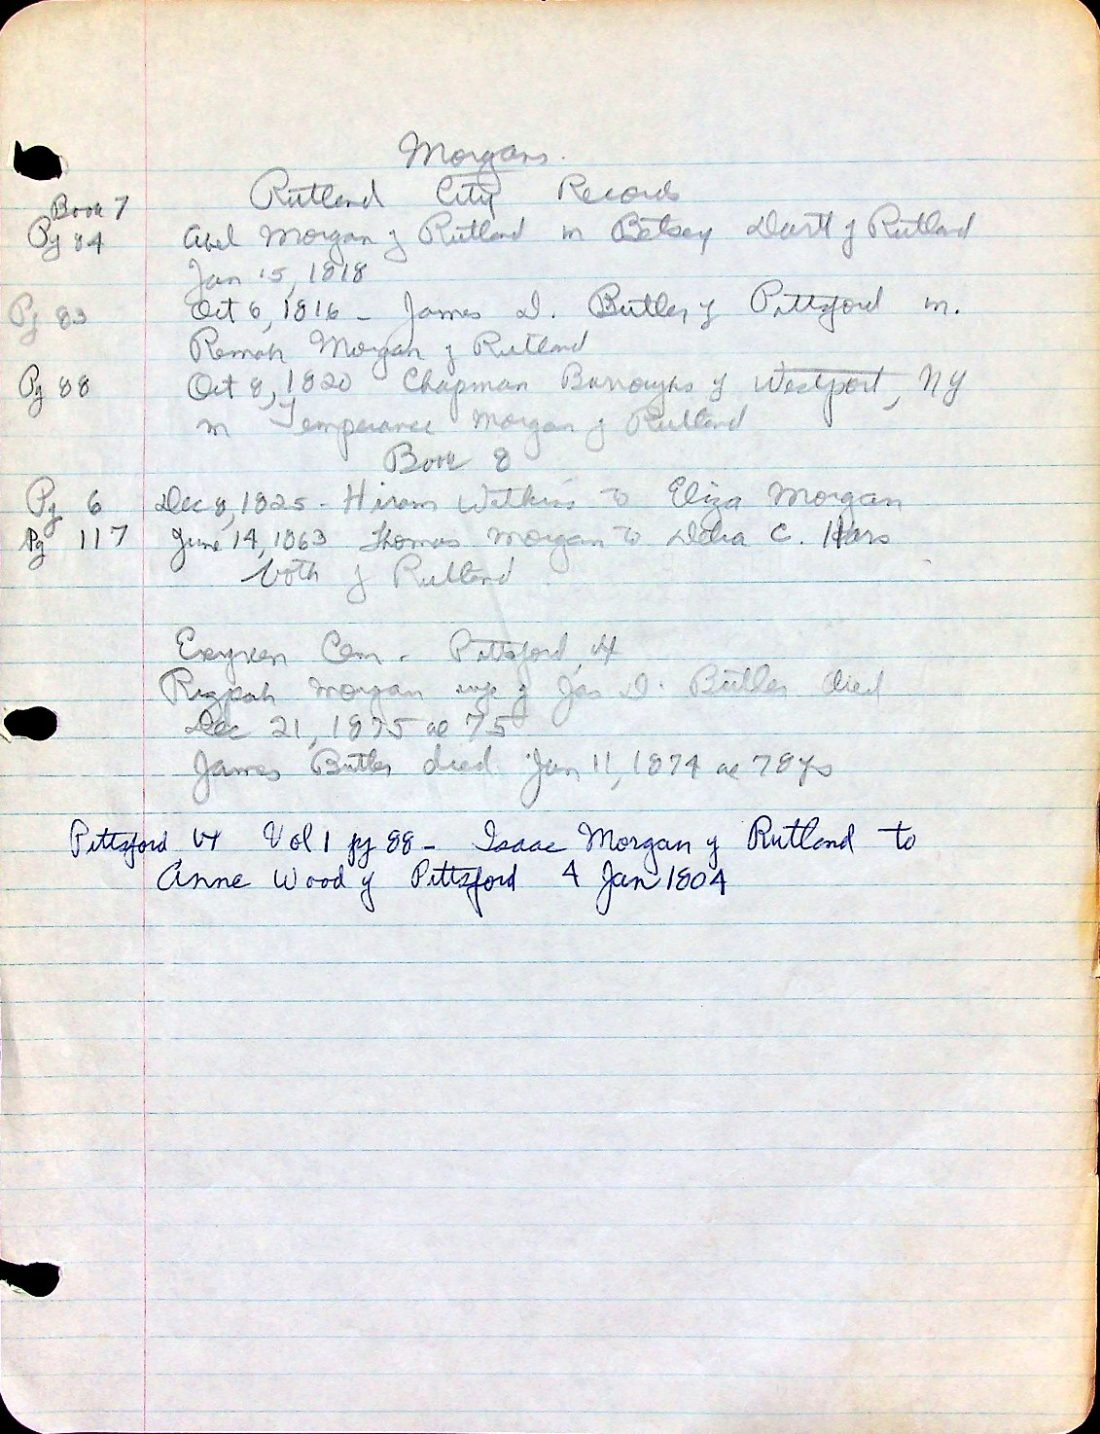 Morgans.
Rutland City Records
Book 7
Pg 84 Abel Morgan of Rutland m Betsey Dart of Rutland
Jan 15, 1818
Pg 83 Oct 6, 1816 - James D. Butler of Pittsford m.
Morgan of Rutland
Pg 88 Oct 8, 1820 Chapman Burroughs of Westport, NY
m Temperance Morgan of Rutland
Book 8
Pg 6 Dec 8, 1825 - Hiram Watkins to Eliza Morgan
Pg 117 June 14, 1863 Thomas Morgan to Delia C.
both of Rutland
Evergreen Cem. Pittsford, Vt
Rizpah Morgan wife of Jas D. Butler died
Dec 21, 1875 ae 75
James Butler died Jan 11, 1874 ae 78 ys
Pittsford Vt Vol 1 pg 88 - Isaac Morgan of Rutland to
Anne Wood of Pittsford 4 Jan 1804